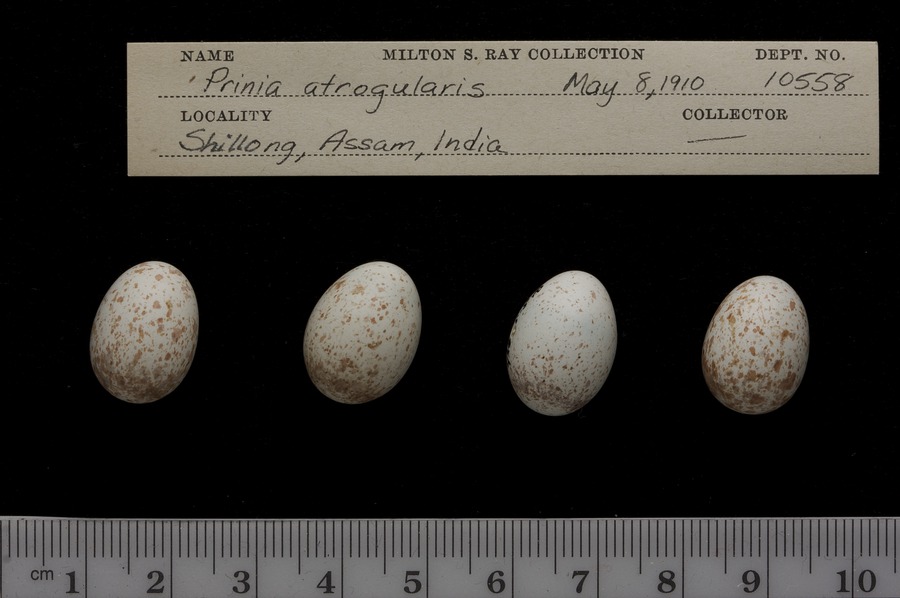 NAME MILTON S. RAY COLLECTION DEPT. NO.
Prinia atrogularis May 8, 1910 10558
LOCALITY COLLECTOR
Shillong, Assam, India
cm 1 2 3 4 5 6 7 8 9 10